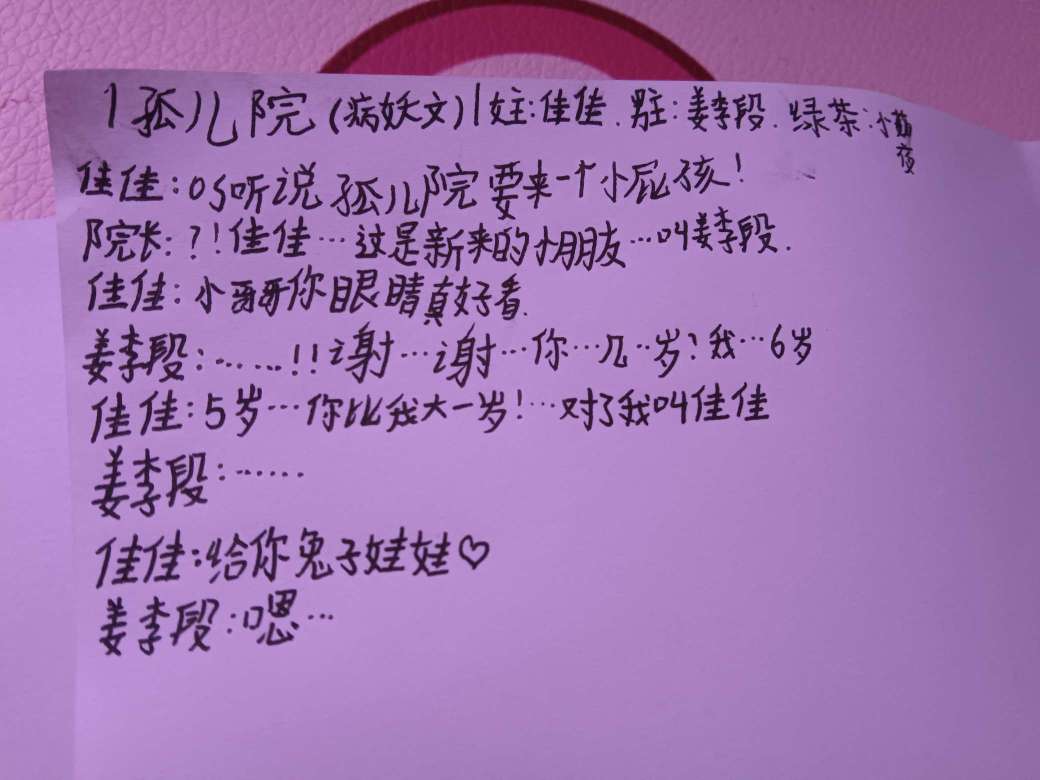 1孤儿院(病妖文)|女主:佳佳.男主:姜李段.绿茶:小
夜
佳佳:OS听说孤儿院要来一个小屁孩!
院长:?!佳佳…这是新来的小朋友…叫姜李段.
佳佳:小哥哥你眼睛真好看.
姜李段:……!!谢…谢…你…几…岁?我…6岁
佳佳:5岁…你比我大一岁!…对了我叫佳佳
姜李段:……
佳佳:给你兔子娃娃♡
姜李段:嗯…